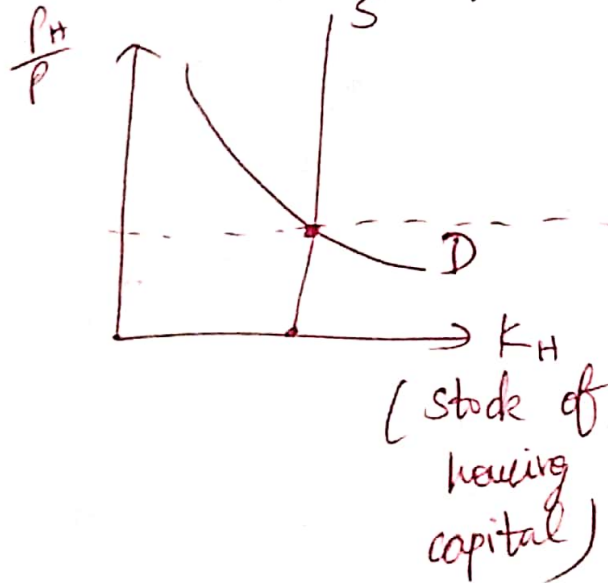 S
P_H
P
D
K_H
(stock of
housing
capital)